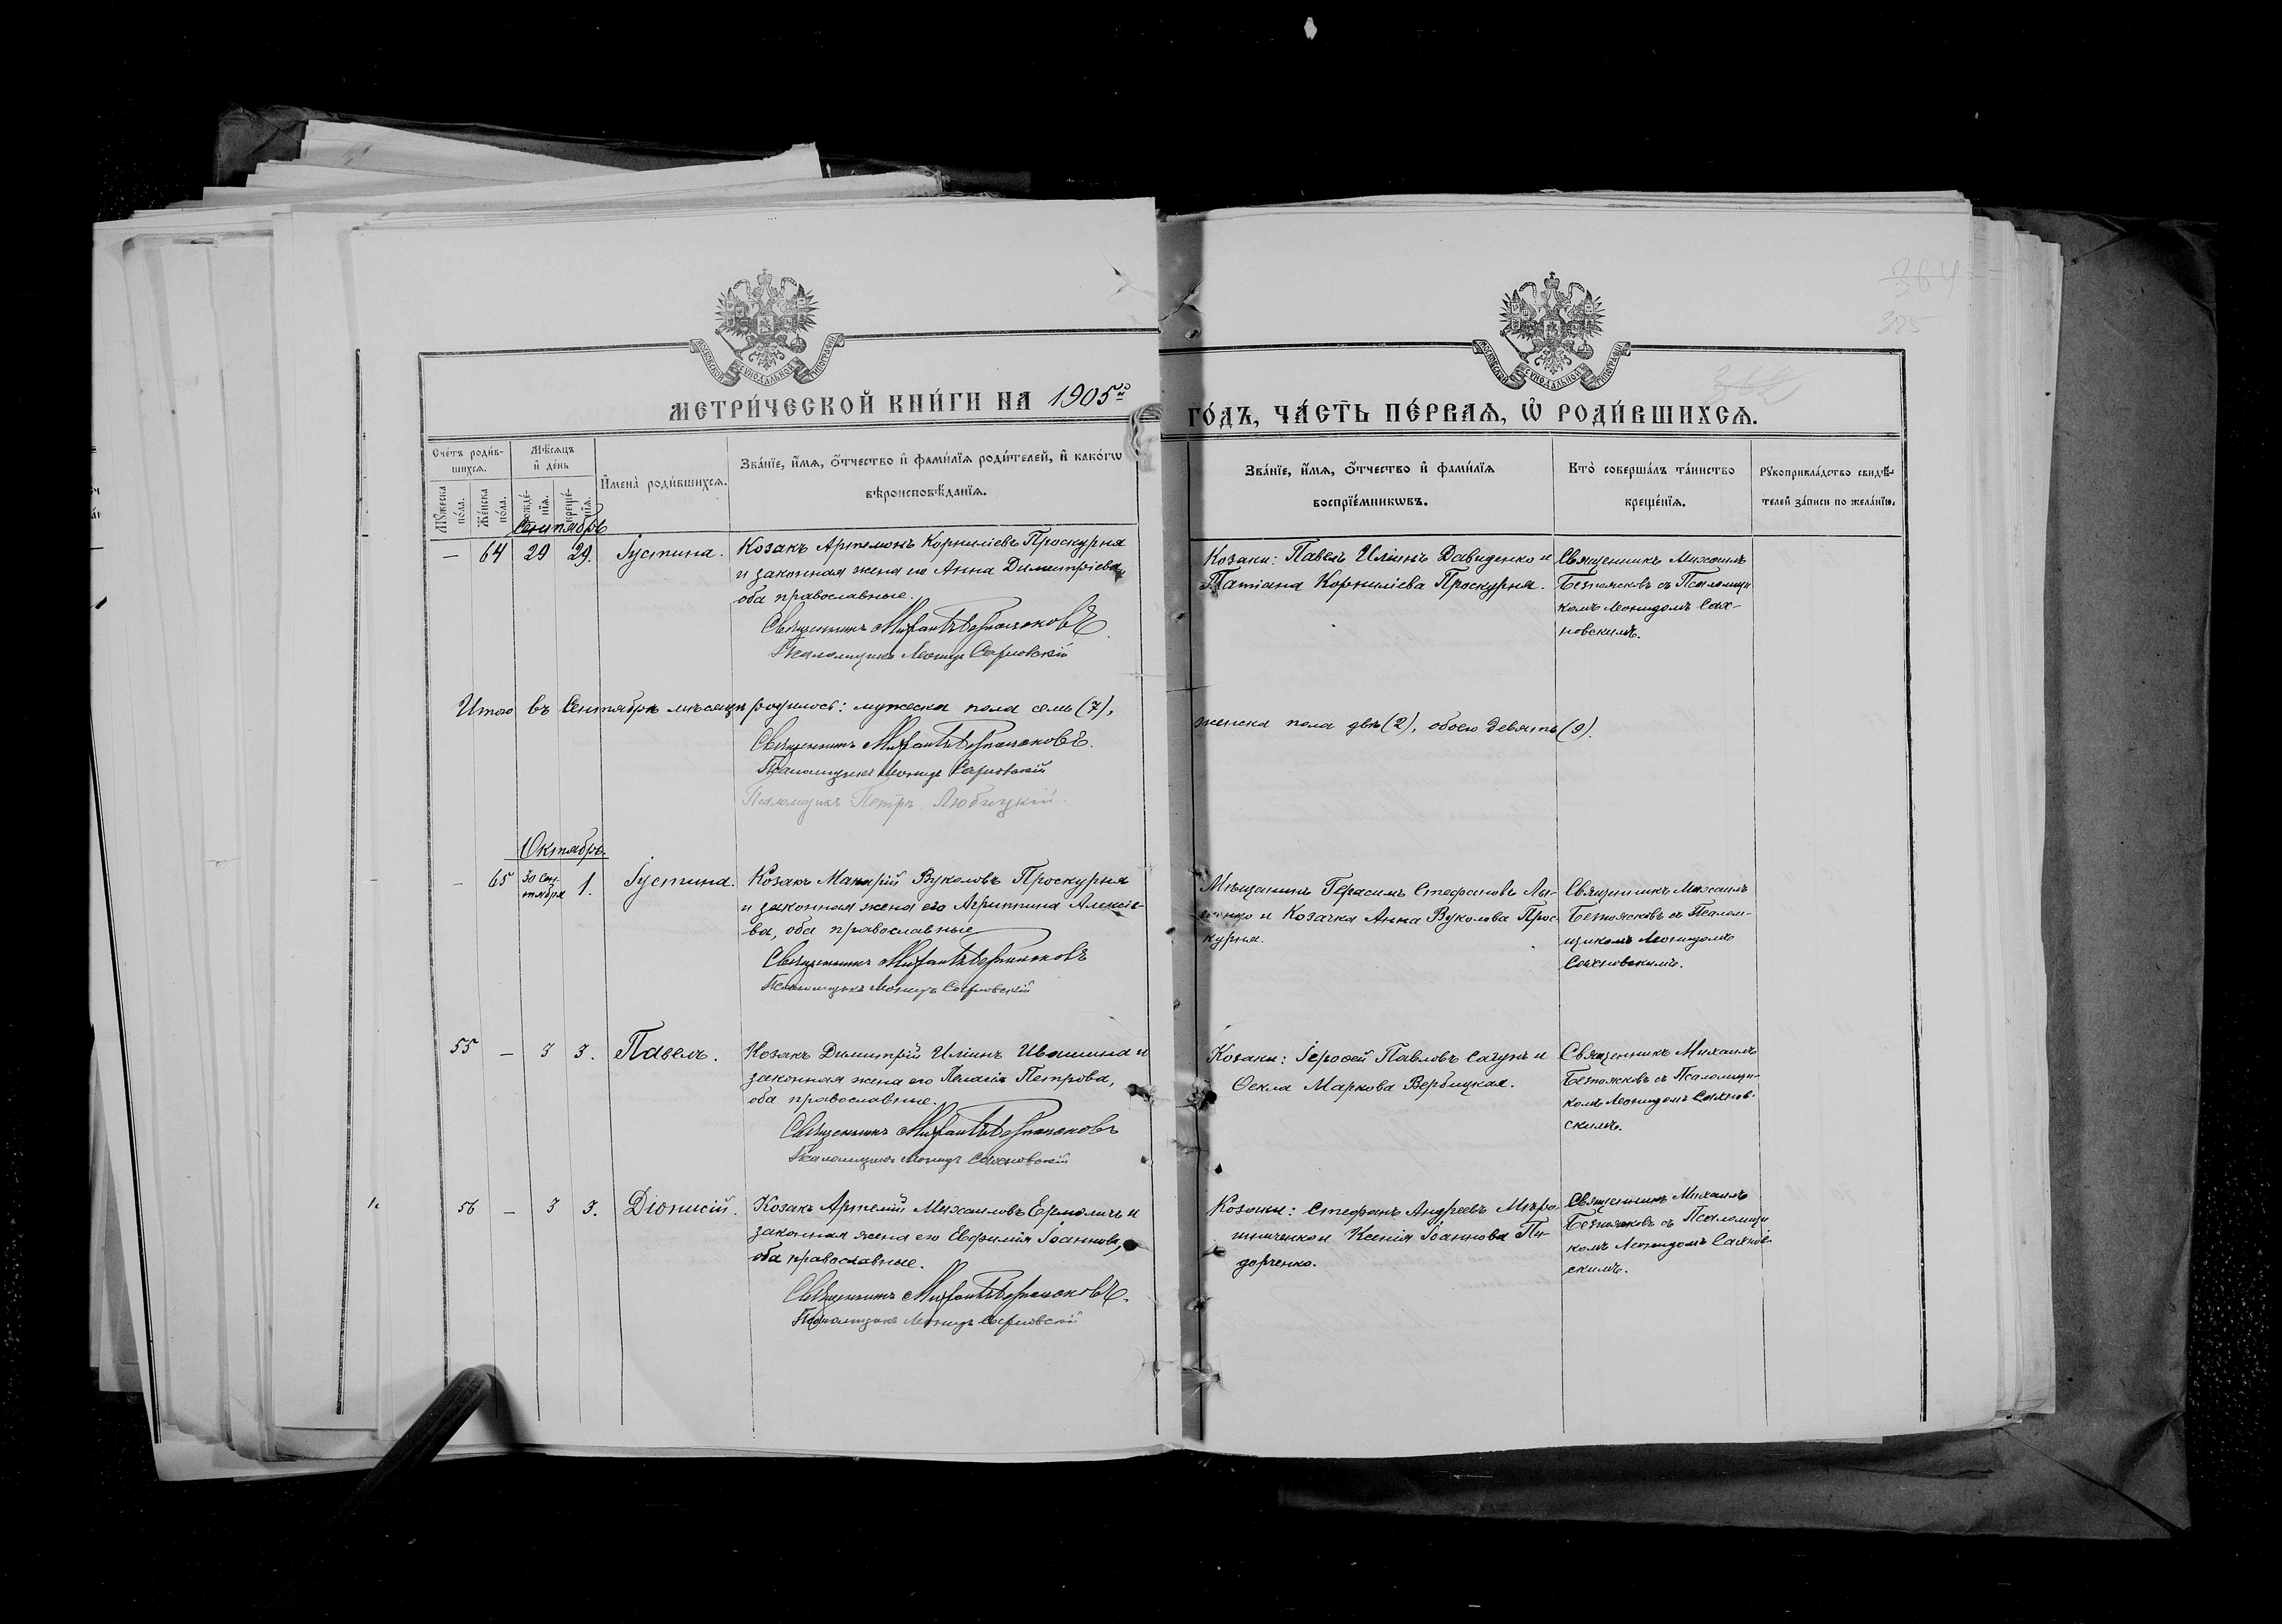 364
375
МОСКОВСКОЙ СѴНОДАЛЬНОЙ ТИПОГРАФІИ
МОСКОВСКОЙ СѴНОДАЛЬНОЙ ТИПОГРАФІИ
МЕТРИ́ЧЕСКОЙ КНИ́ГИ НА 1905го
ГО́ДЪ, ЧА́СТЬ ПЕ́РВАѦ, Ѡ҆ РОДИ́ВШИХСѦ.
Сче́тъ роди́в-
шихсѧ.
Мѣ́сѧцъ
и҆ де́нь
Мꙋ́жеска
по́ла.
Же́нска
по́ла.
рожде́-
нїѧ.
креще́-
нїѧ.
И҆мена̀ роди́вшихсѧ.
Зва́нїе, и҆́мѧ, ѻ҆́тчество и҆ фами́лїѧ роди́телей, и҆ како́гѡ
вѣроисповѣ́данїѧ.
Зва́нїе, и҆́мѧ, ѻ҆́тчество и҆ фами́лїѧ
воспрїе́мникѡвъ.
Кто̀ соверша́лъ та́инство
креще́нїѧ.
Рꙋкоприкла́дство свидѣ́-
телей за́писи по жела́нїю.
Сентябрь
— 64 29 29. Іустина. Козакъ Артемонъ Корниліевъ Проскурня
и законная жена его Анна Димитріева,
оба православные.
Священникъ Михаилъ Безпоясковъ
Псаломщикъ Леонидъ Сахновскій
Козаки: Павелъ Иліинъ Давиденко и
Татіана Корниліева Проскурня.
Священникъ Михаилъ
Безпоясковъ съ Псаломщи
комъ Леонидомъ Сах-
новскимъ.
Итого въ Сентябрѣ мѣсяцѣ родилось: мужеска пола семь (7),
женска пола двѣ (2), обоего девять (9).
Священникъ Михаилъ Безпоясковъ.
Псаломщикъ Леонидъ Сахновскій
Псаломщикъ Петръ Любицкій
Октябрь.
— 65 30 Сен-
тября 1. Іустина. Козакъ Макарій Вуколовъ Проскурня
и законная жена его Агриппина Алексѣе-
ва, оба православные
Священникъ Михаилъ Безпоясковъ
Псаломщикъ Леонидъ Сахновскій
Мѣщанинъ Герасимъ Стефановъ
и Козачка Анна Вуколова Прос-
курня.
Священникъ Михаилъ
Безпоясковъ съ Псалом-
щикомъ Леонидомъ
Сахновскимъ.
55 — 3 3. Павелъ. Козакъ Димитрій Иліинъ Ивашина и
законная жена его Пелагія Петрова,
оба православные.
Священникъ Михаилъ Безпоясковъ
Псаломщикъ Леонидъ Сахновскій
Козаки: Іероѳей Павловъ Сагунъ и
Ѳекла Маркова Вербицкая.
Священникъ Михаилъ
Безпоясковъ съ Псаломщи-
комъ Леонидомъ Сахнов-
скимъ.
56 — 3 3. Діонисій. Козакъ Артемій Михаиловъ Ермоличъ и
законная жена его Евфимія Іоаннова,
оба православные.
Священникъ Михаилъ Безпоясковъ.
Псаломщикъ Леонидъ Сахновскій
Козаки: Стефанъ Андреевъ Мѣро-
шниченко и Ксенія Іоаннова Пи-
дорченко.
Священникъ Михаилъ
Безпоясковъ съ Псаломщи
комъ Леонидомъ Сахнов-
скимъ.